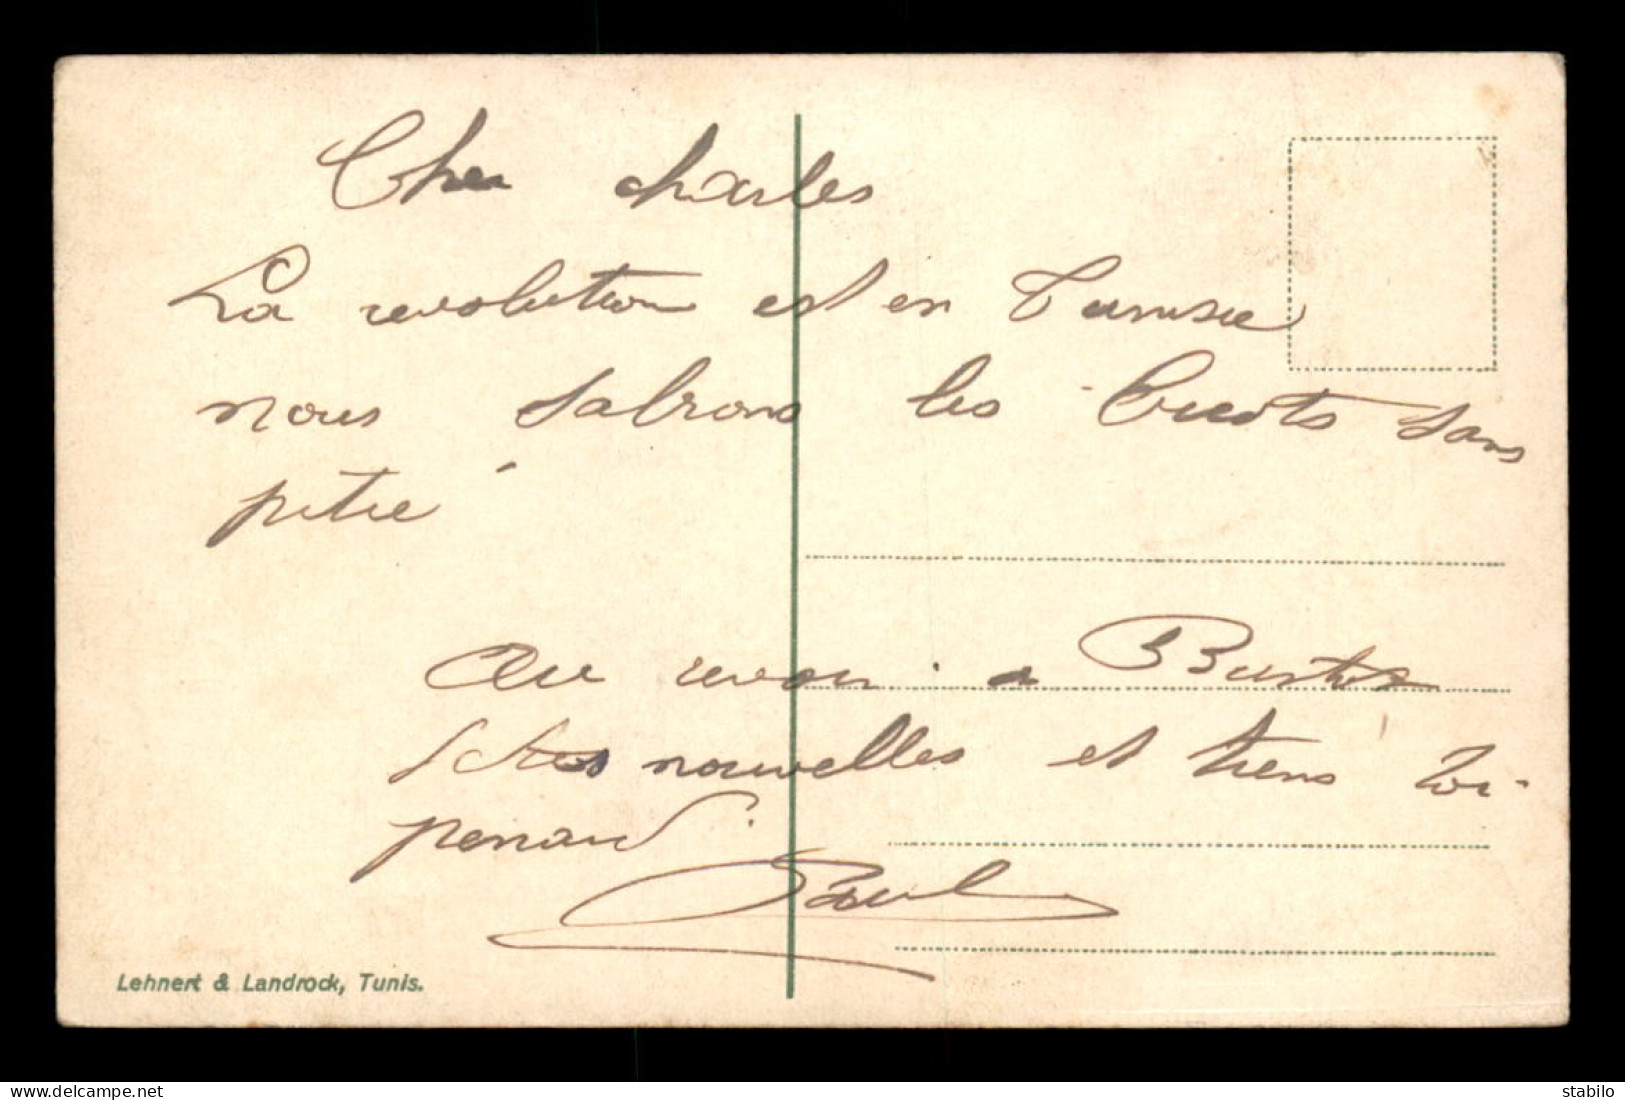 Cher charles
La revolution est en Tunisie
nous sabrons les sans
pitié
Au revoir a
nouvelles et tiens toi
penard
Paul
Lehnert & Landrock, Tunis.
https://www.delcampe.net
stabilo